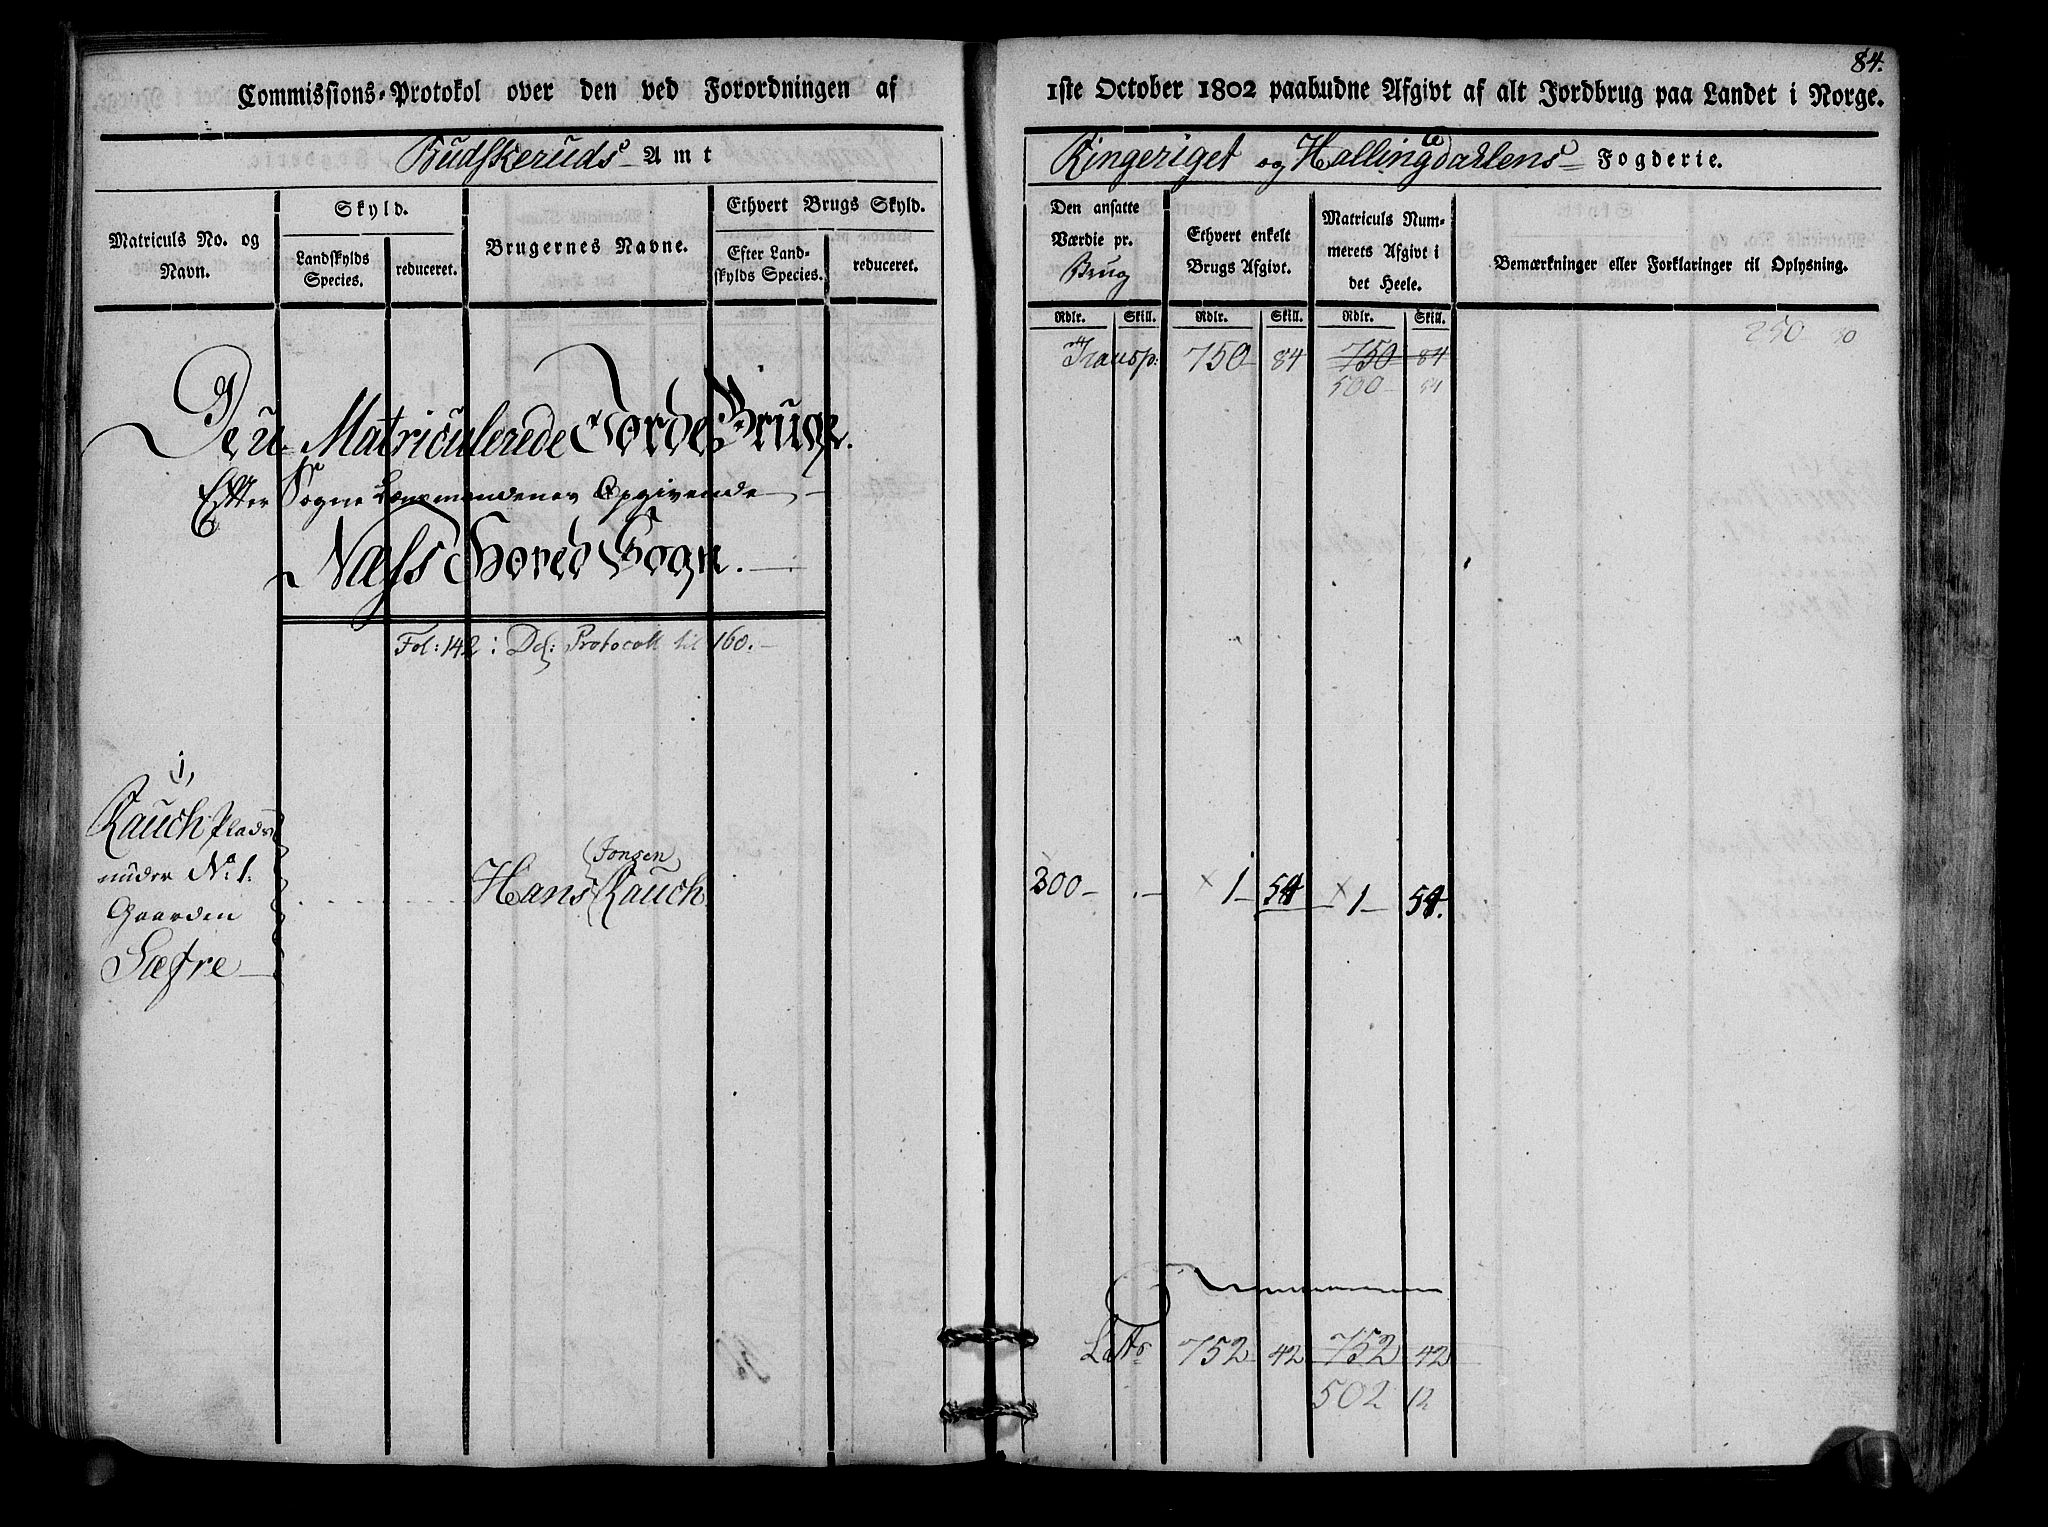 84.
Commissions-Protokol over den ved Forordningen af 1ste October 1802 paabudne Afgivt af alt Jordbrug paa Landet i Norge.
Budskeruds Amt
Ringeriget og Hallingdahlens Fogderie.
Matriculs No. og Navn.
Skyld.
Landskylds Species.
reduceret.
Brugernes Navne.
Ethvert Brugs Skyld.
Efter Landskylds Species.
reduceret.
Den ansatte Værdie pr. Brug
Ethvert enkelt Brugs Afgivt.
Matriculs Nummerets Afgivt i det Heele.
Bemærkninger eller Forklaringer til Oplysning.
Rdlr. Skill. Rdlr. Skill. Rdlr. Skill.
250 30
Transp: 750 84 750 84
500 54
De u Matriculerede Jorde Bruge.
Efter Sogne Lænsmandenes Opgivende
Næss Hoved Sogn.
Fol: 142 : Ds: Protocoll til 160.
1,
Rauch Plads
under No 1:
Gaarden
Sæfre
Hans Jonsen Rauch. 300 - . - 1 54 1 54.
Lats 752 42 752 42
502 12